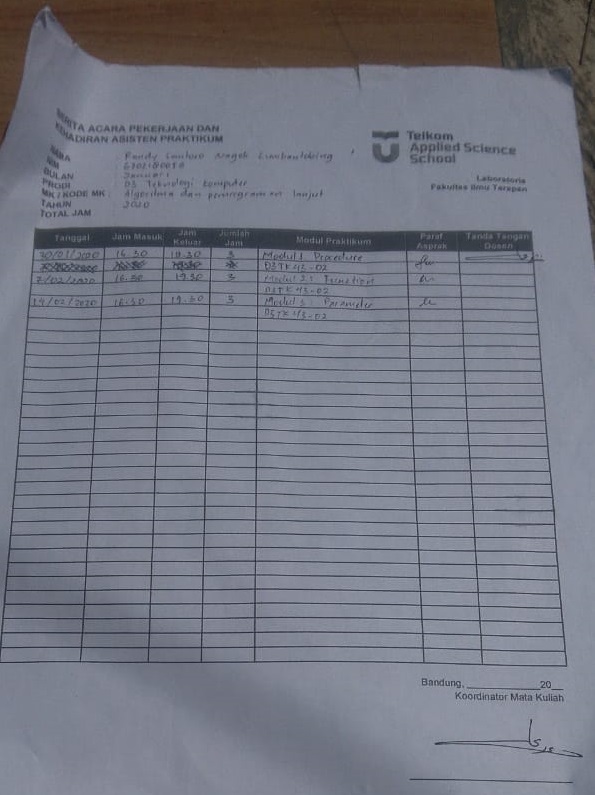 BERITA ACARA PEKERJAAN DAN
KEHADIRAN ASISTEN PRAKTIKUM
Telkom
Applied Science
School
Laboratoria
Fakultas Ilmu Terapan
NAMA :
NIM :
BULAN : Januari
PRODI : D3 Teknologi Komputer
MK / KODE MK : Algoritma dan pemrograman lanjut
TAHUN : 2020
TOTAL JAM
Tanggal Jam Masuk Jam Keluar Jumlah Jam Modul Praktikum Paraf Asprak Tanda Tangan Dosen
30/01/2020 16.30 19.30 3 Modul 1 Procedure
D3TK43-02
7/02/2020 16.30 19.30 3 Modul 2 : Function
D3TK43-02
14/02/2020 16.30 19.30 3 Modul 3 : Parameter
D3TK43-02
Bandung, 20
Koordinator Mata Kuliah